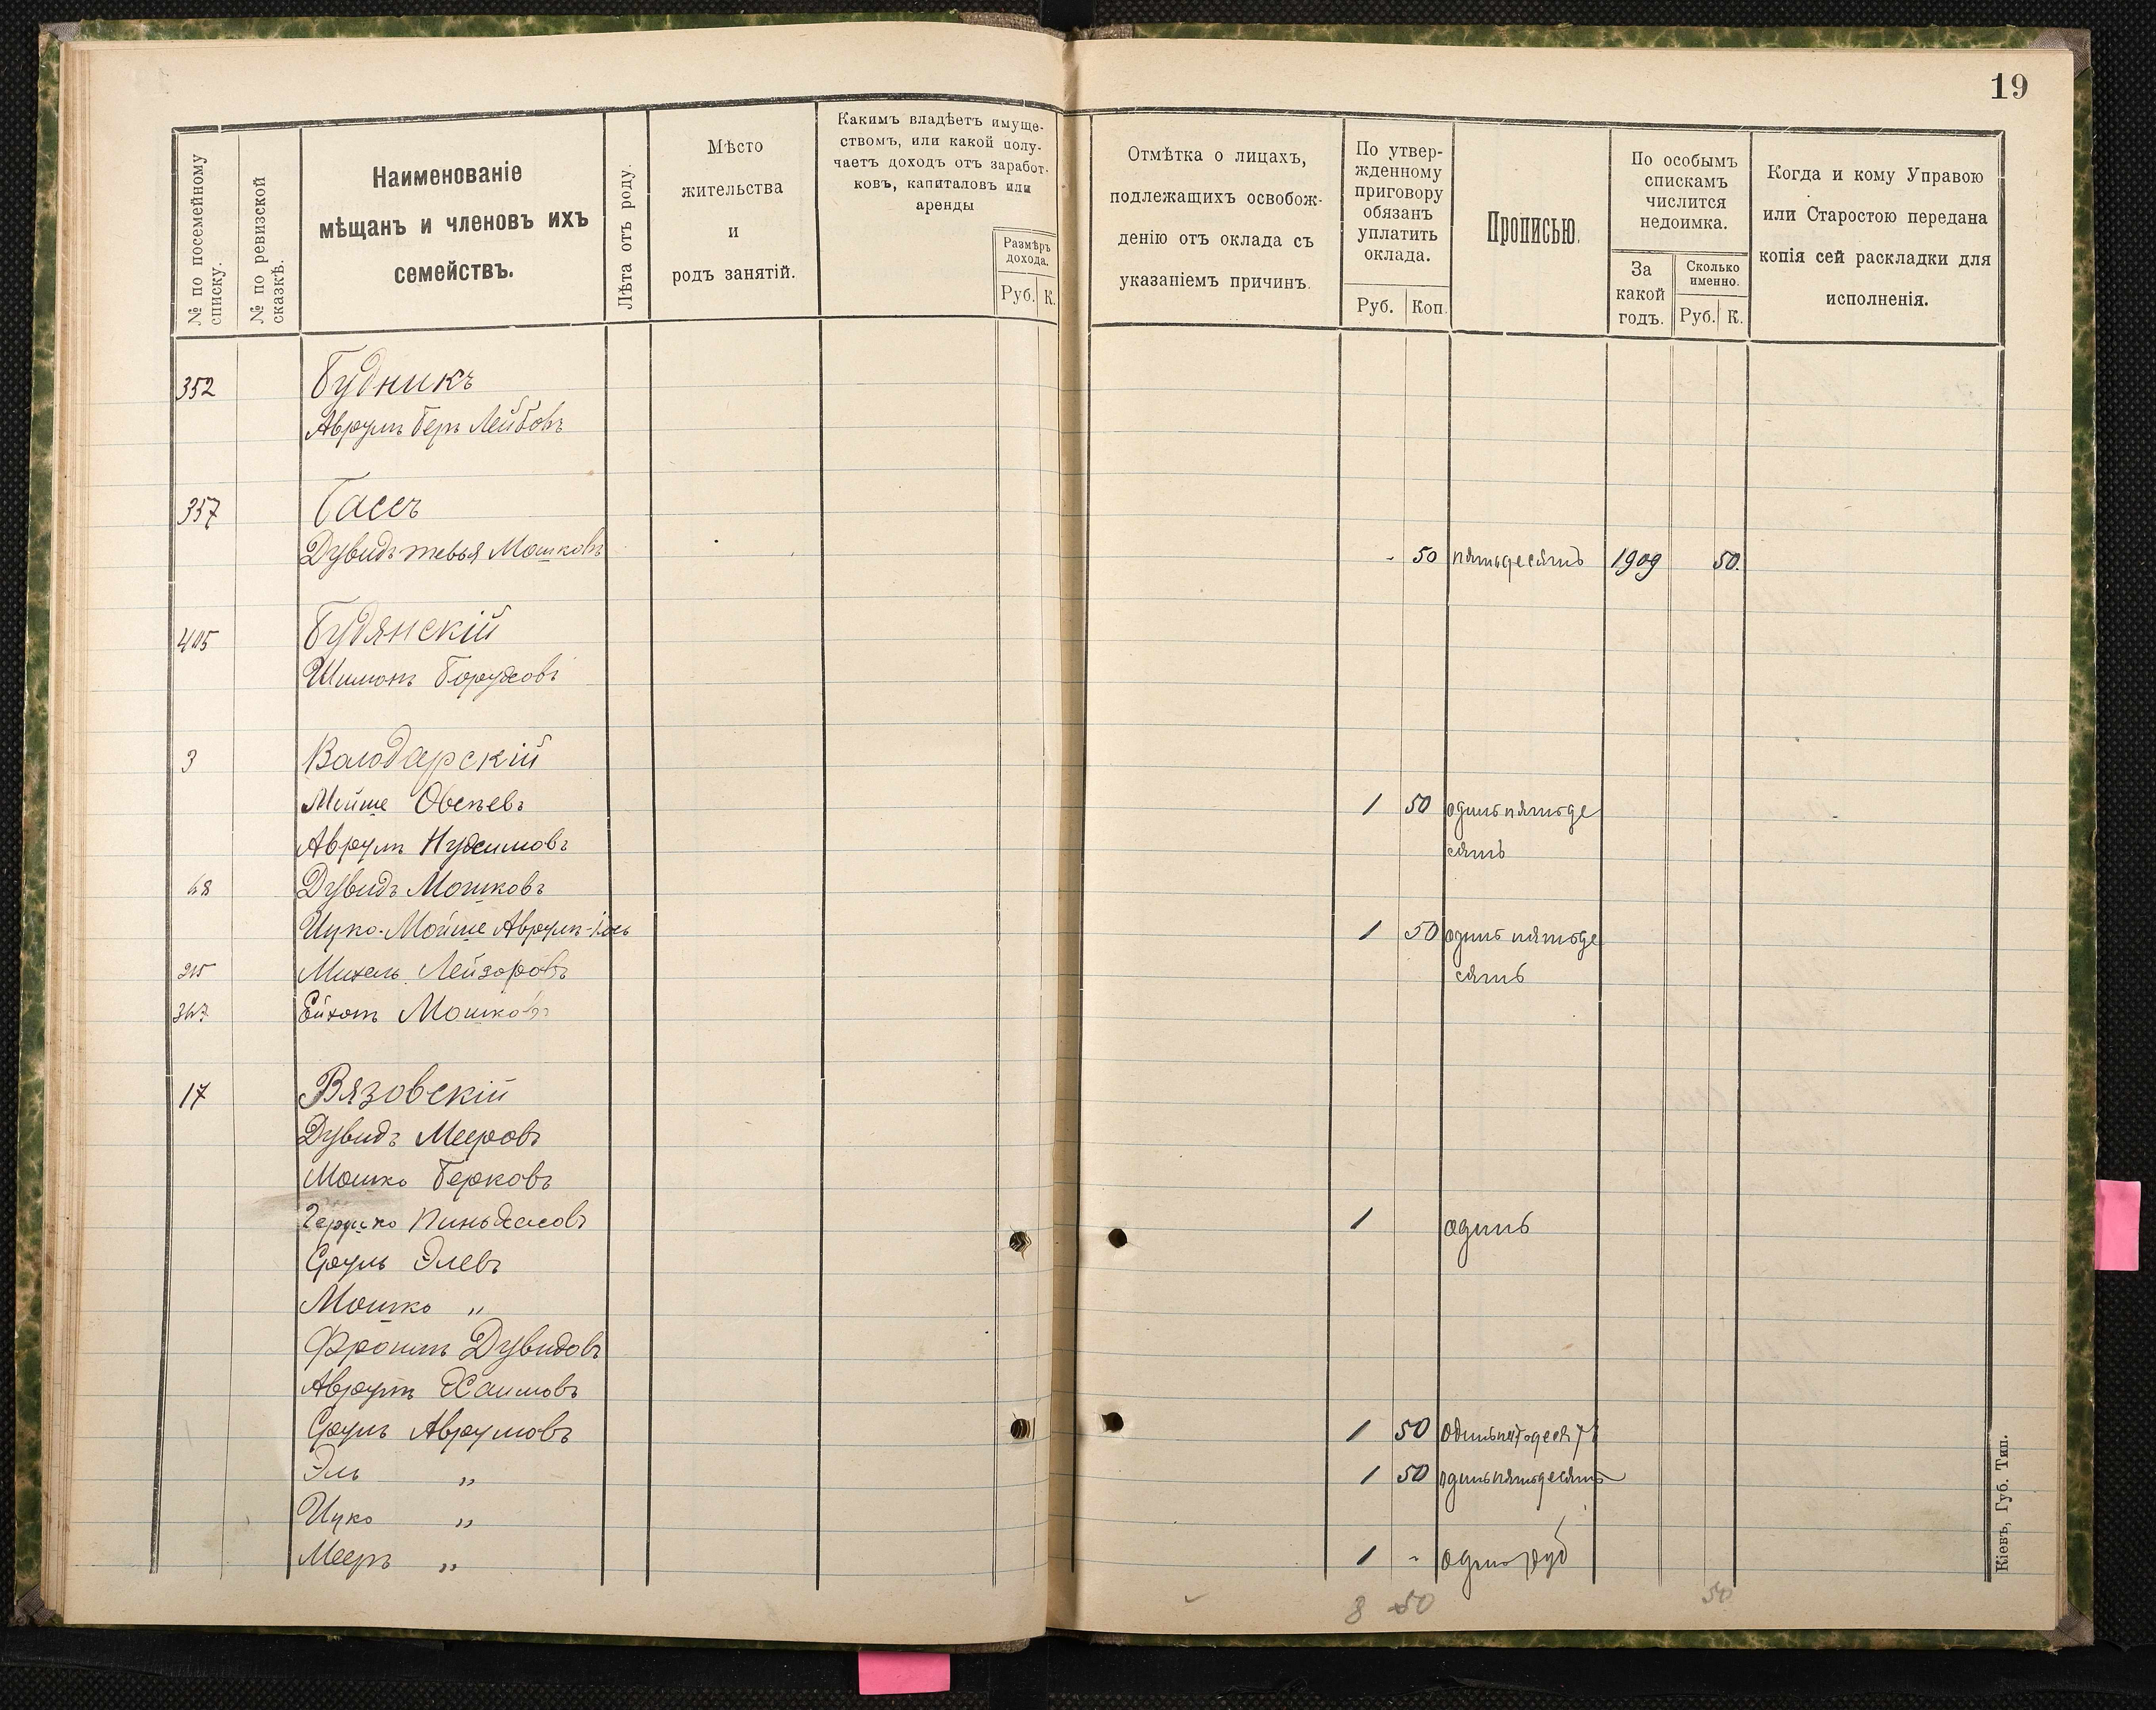 19
№ по посемейному
списку.
№ по ревизской
сказкѣ.
Наименованіе
мѣщанъ и членовъ ихъ
семействъ.
Лѣта отъ роду.
Мѣсто
жительства
и
родъ занятій.
Какимъ владѣетъ имуще-
ствомъ, или какой полу-
чаетъ доходъ отъ заработ-
ковъ, капиталовъ или
аренды
Размѣръ
дохода.
Руб. К.
Отмѣтка о лицахъ,
подлежащихъ освобож-
денію отъ оклада съ
указаніемъ причинъ.
По утвер-
жденному
приговору
обязанъ
уплатить
оклада.
Руб. Коп.
Прописью.
По особымъ
спискамъ
числится
недоимка.
За
какой
годъ.
Сколько
именно.
Руб. К.
Когда и кому Управою
или Старостою передана
копія сей раскладки для
исполненія.
352 Будникъ
Аврумъ Беръ Лейбовъ
357 Бассъ
Дувидъ тевья Мошковъ - 50 пятьдесятъ 1909 50.
405 Будянскій
Шимонъ Боруховъ
3 Володарскій
Мойше Овсѣевъ 1 50 одинъ пятьде
Аврумъ Нухимовъ сятъ
68 Дувидъ Мошковъ
Ицко-Мойше Аврумъ- 1 50 одинъ пятьде
215 Михель Лейзоровъ сятъ
367 Мошковъ
17 Вязовскій
Дувидъ Мееровъ
Мошко Берковъ
Гершко Пиньхасовъ 1 одинъ
Сруль Элевъ
Мошко "
Фроимъ Дувидовъ
Аврумъ Хаимовъ
Сруль Аврумовъ 1 50 одинъ пятьдесятъ
Эль " 1 50 одинъ пятьдесятъ
Ицко "
Мееръ " 1 - одинъ руб
8 50 50
Кіевъ, Губ. Тип.